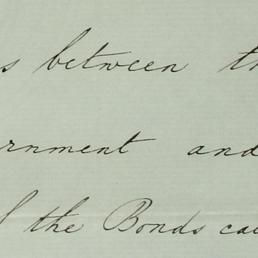 s between th
rnment and
f the Bonds cau